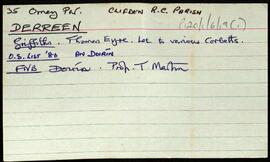 35 Omey Par. CLIFDEN R.C. PARISH
P120/1/6/19(1)
DERREEN
Griffiths. Thomas Eyre. Let to various Corbetts.
O.S. LIST '80 AN DOIRÍN
FNB Doirín. Prop. T. Martin